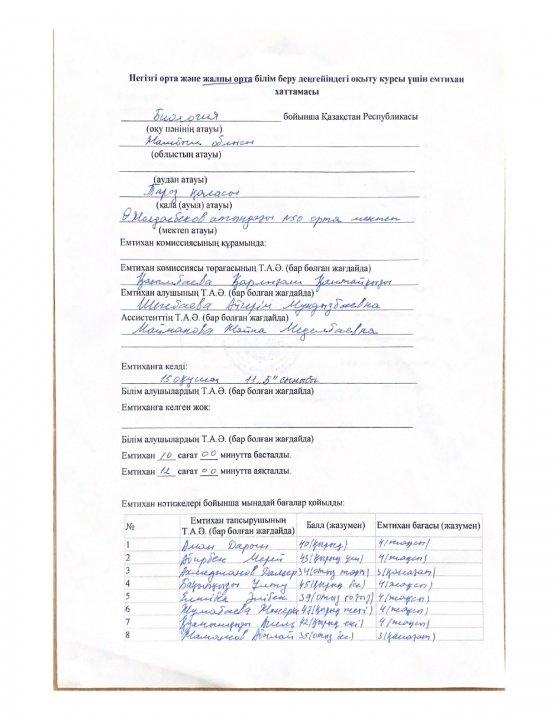 Негізгі орта және жалпы орта білім беру деңгейіндегі оқыту курсы үшін емтихан
хаттамасы
Биология бойынша Қазақстан Республикасы
(оқу пәнінің атауы)
Жамбыл облысы
(облыстың атауы)
(аудан атауы)
Тараз қаласы
(қала (ауыл) атауы)
атындағы №50 орта мектеп
(мектеп атауы)
Емтихан комиссиясының құрамында:
Емтихан комиссиясы төрағасының Т.А.Ә. (бар болған жағдайда)
Емтихан алушының Т.А.Ә. (бар болған жағдайда)
Ассистенттің Т.А.Ә. (бар болған жағдайда)
Майманова
Емтиханға келді:
15 оқушы 11 "Б" сыныбы
Білім алушылардың Т.А.Ә. (бар болған жағдайда)
Емтиханға келген жоқ:
Білім алушылардың Т.А.Ә. (бар болған жағдайда)
Емтихан 10 сағат 00 минутта басталды.
Емтихан 12 сағат 00 минутта аяқталды.
Емтихан нәтижелері бойынша мынадай бағалар қойылды:
№ Емтихан тапсырушының Т.А.Ә. (бар болған жағдайда) Балл (жазумен) Емтихан бағасы (жазумен)
1 40 (қырық) 4 (жақсы)
2 Мерей 43 (қырық үш) 4 (жақсы)
3 34 (отыз төрт) 3 (қанағат)
4 45 (қырық бес) 4 (жақсы)
5 39 (отыз тоғыз) 4 (жақсы)
6 47 (қырық жеті) 4 (жақсы)
7 42 (қырық екі) 4 (жақсы)
8 Абылай 35 (отыз бес) 3 (қанағат)